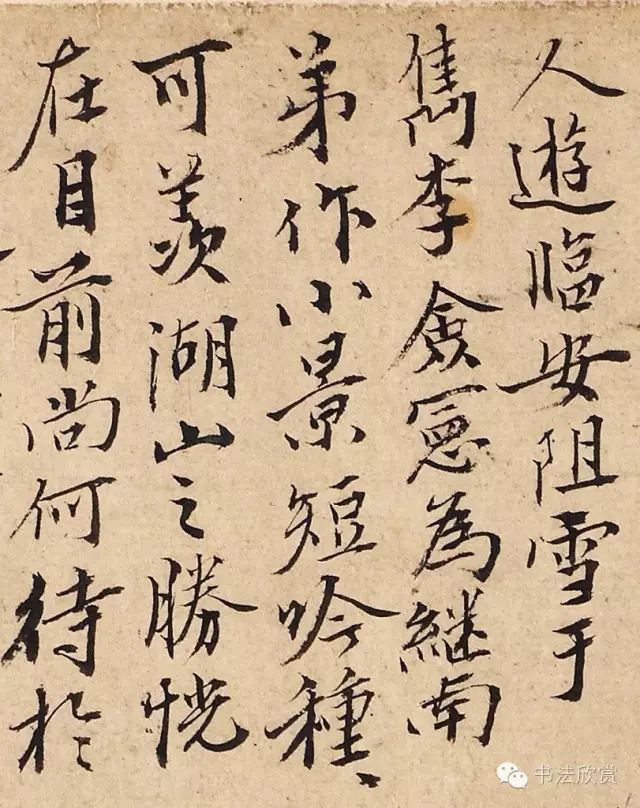 人遊临安阻雪于
雋李僉宪為継南
弟作小景短吟種〻
可羡湖山之勝恍
在目前尚何待於
书法欣赏